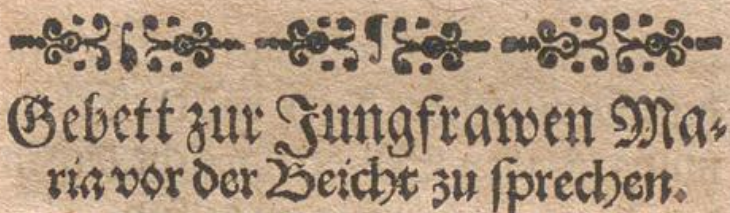 Gebett zur Jungfrawen Ma-
ria vor der Beicht zu sprechen.